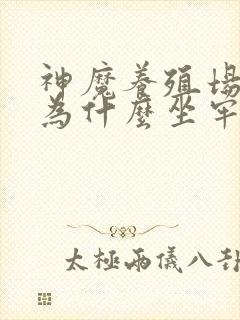 神魔養殖場
為什麼坐牢
太極兩儀八卦